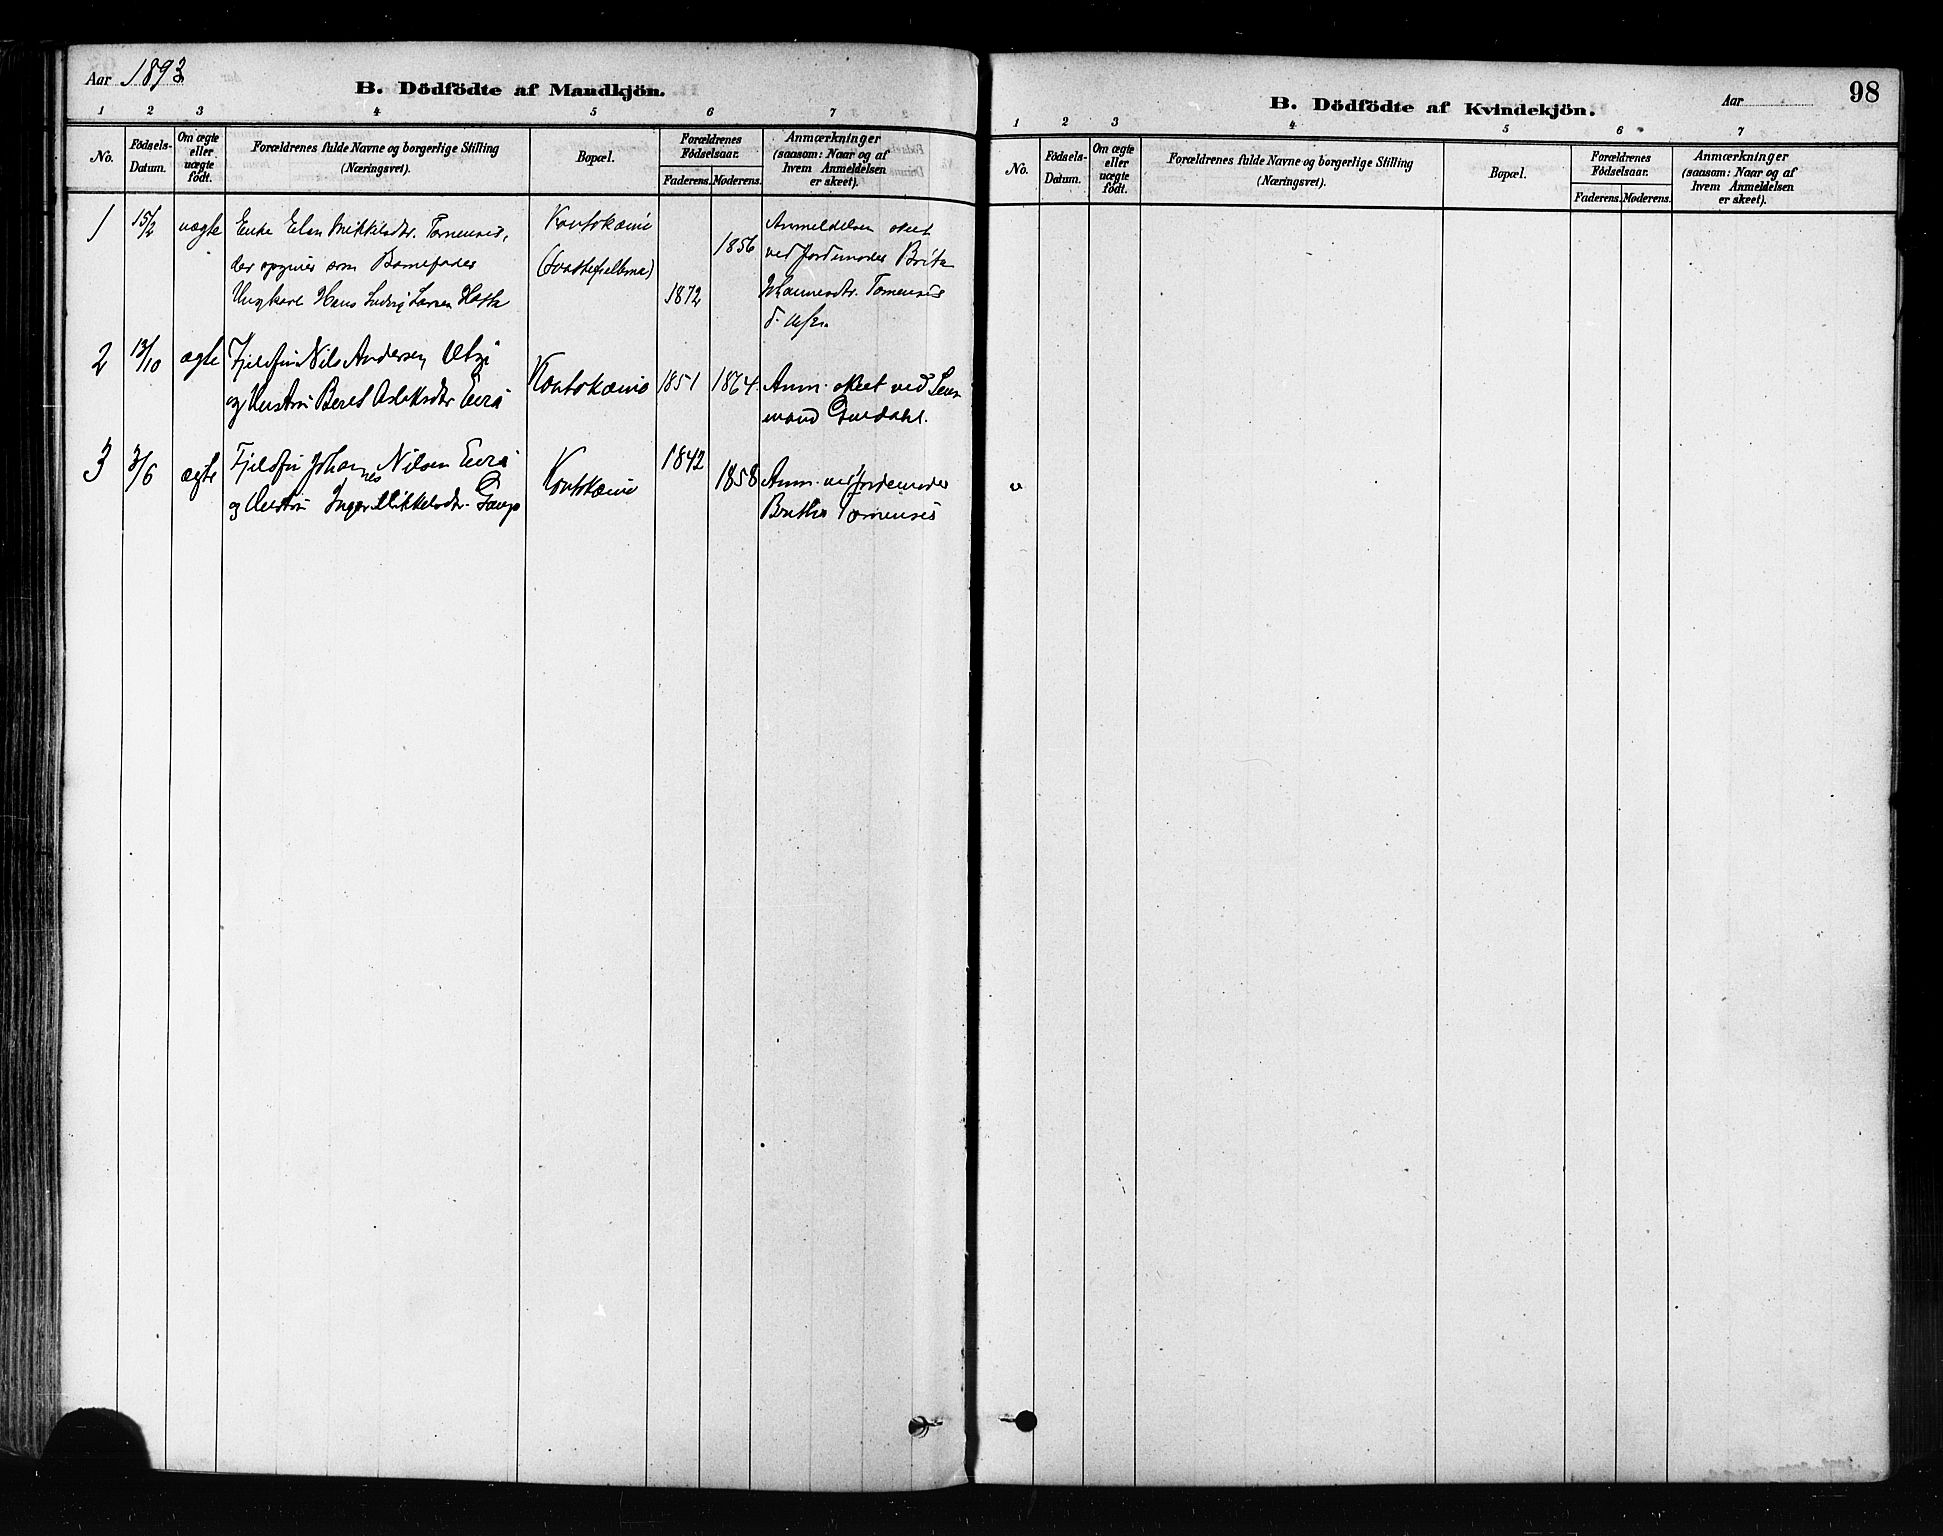 Aar 1893
B. Dödfödte af Mandkjön.
1 2 3 4 5 6 7
No.
Födsels-Datum.
Om ægte eller uægte födt.
Forældrenes fulde Navne og borgerlige Stilling
(Næringsvei).
Bopæl.
Forældrenes Födselsaar.
Faderens. Moderens.
Anmærkninger
(saasom: Naar og af
hvem Anmeldelsen
er skeet).
1 15/2 uægte
Enke Elen Mikkelsdtr. Tornensis,
der opgiver som Barnefader
Ungkarl Hans Ludvig Larsen Hætta
Koutokæino
1872 1856
Anmeldelsen skeet
ved Jordemoder Brita
Johannesdtr. Tornensis
2 13/10 ægte
Fjeldfin Nils Andersen Utzi
og Hustru Beret Aslaksdtr Eira
Koutokæino
1851 1864
Anm. skeet ved Lens
mand Guldahl.
3 3/6 ægte
Fjeldfin Johannes Nilsen Eira
og Hustru Inger Mikkelsdtr. Gaup
Koutokæino
1842 1858
Anm. ved Jordemoder
Brita Tornensis
98
B. Dödfödte af Kvindekjön.
Aar
1 2 3 4 5 6 7
No.
Födsels-Datum.
Om ægte eller uægte födt.
Forældrenes fulde Navne og borgerlige Stilling
(Næringsvei).
Bopæl.
Forældrenes Födselsaar.
Faderens. Moderens.
Anmærkninger
(saasom: Naar og af
hvem Anmeldelsen
er skeet).
"